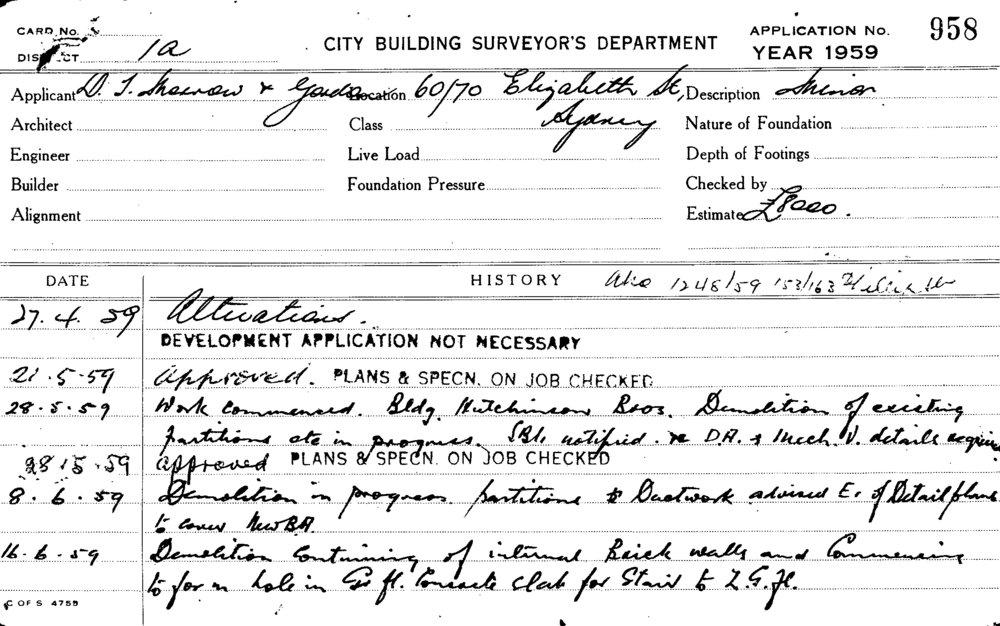 CARD No.
CITY BUILDING SURVEYOR'S DEPARTMENT
APPLICATION No. 958
DISTRICT 1a
YEAR 1959
Applicant D. T. Morrow & Gordon Location 60/70 Elizabeth St, Description Minor
Architect Class Sydney Nature of Foundation
Engineer Live Load Depth of Footings
Builder Foundation Pressure Checked by
Alignment Estimate £8000.
DATE HISTORY Also 1248/59 153/163
27.4.59 Alterations.
DEVELOPMENT APPLICATION NOT NECESSARY
21.5.59 Approved. PLANS & SPECN. ON JOB CHECKED
28.5.59 Work commenced. Bldg. Hutchinson Bros. Demolition of existing
partitions etc in progress. notified. re DA. & Mech. V. details
28.5.59 approved PLANS & SPECN. ON JOB CHECKED
8.6.59 Demolition in progress partitions & Ductwork advised E. of Detail plans
to cover New BA.
16.6.59 Demolition continuing of internal Brick walls and Commencing
to form hole in Gr. fl. Concrete slab for Stair to L.G.fl.
C OF S 4759